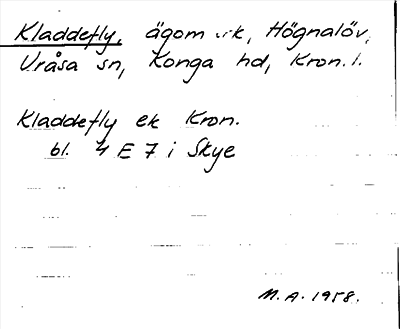 Kladdefly, ägomrk, Högnalöv,
Uråsa sn, Konga hd, Kron. l.
Kladdefly ek Kron.
bl. 4 E 7 i Skye
M.A. 1958.